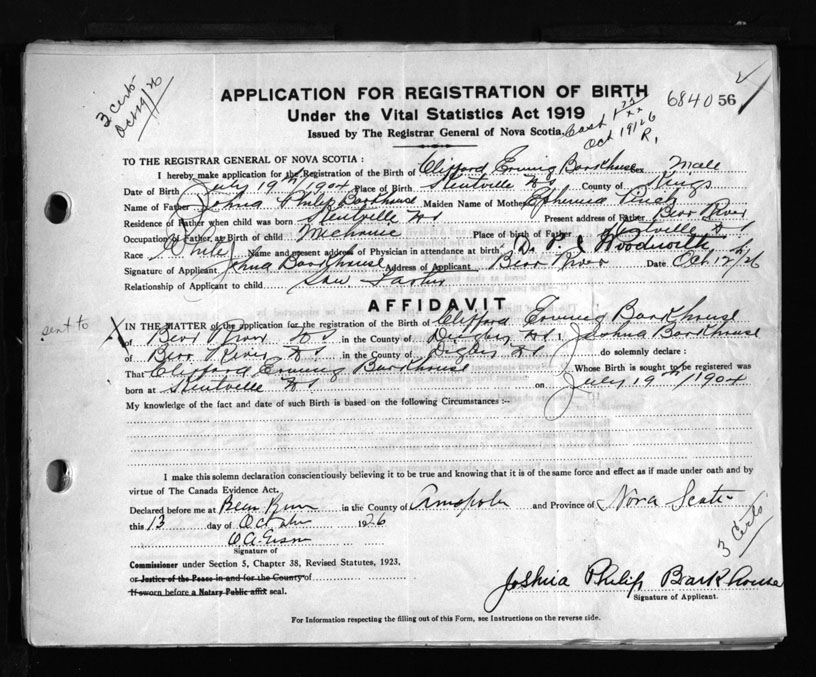 3 Certs
Oct 19/26
APPLICATION FOR REGISTRATION OF BIRTH
Under the Vital Statistics Act 1919
Issued by The Registrar General of Nova Scotia.
684056
Cash
Oct 19/26
TO THE REGISTRAR GENERAL OF NOVA SCOTIA :
I hereby make application for the Registration of the Birth of Clifford Barkhouse Sex Male
Date of Birth July 19th/1904 Place of Birth Kentville NS County of Kings
Name of Father Philip Barkhouse Maiden Name of Mother
Residence of Father when child was born Kentville NS Present address of Father Bear River
Occupation of Father, at Birth of child Mechanic Place of birth of Father NS
Race White Name and present address of Physician in attendance at birth Dr Woodworth
Signature of Applicant Barkhouse Address of Applicant Bear River Date Oct 12th/26
Relationship of Applicant to child
AFFIDAVIT
sent to X IN THE MATTER of the application for the registration of the Birth of Clifford Barkhouse
of Bear River NS in the County of Digby NS I, Joshua Barkhouse
of Bear River NS in the County of Digby NS do solemnly declare :
That Clifford Barkhouse Whose Birth is sought to be registered was
born at Kentville NS on July 19th/1904
My knowledge of the fact and date of such Birth is based on the following Circumstances :-
I make this solemn declaration conscientiously believing it to be true and knowing that it is of the same force and effect as if made under oath and by
virtue of The Canada Evidence Act.
Declared before me at Bear River in the County of Annapolis and Province of Nova Scotia
this 13 day of October 1926
3 Certs
Signature of
Commissioner under Section 5, Chapter 38, Revised Statutes, 1923.
or Justice of the Peace in and for the County of
If sworn before a Notary Public affix seal.
Joshua Philip Barkhouse
Signature of Applicant.
For Information respecting the filling out of this Form, see Instructions on the reverse side.